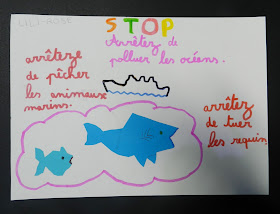 LILI-ROSE
STOP
Arrêtez de
polluer les océans.
arrêtez
de pêcher
les animeaux
marins.
arrêtez
de tuer
les requins.